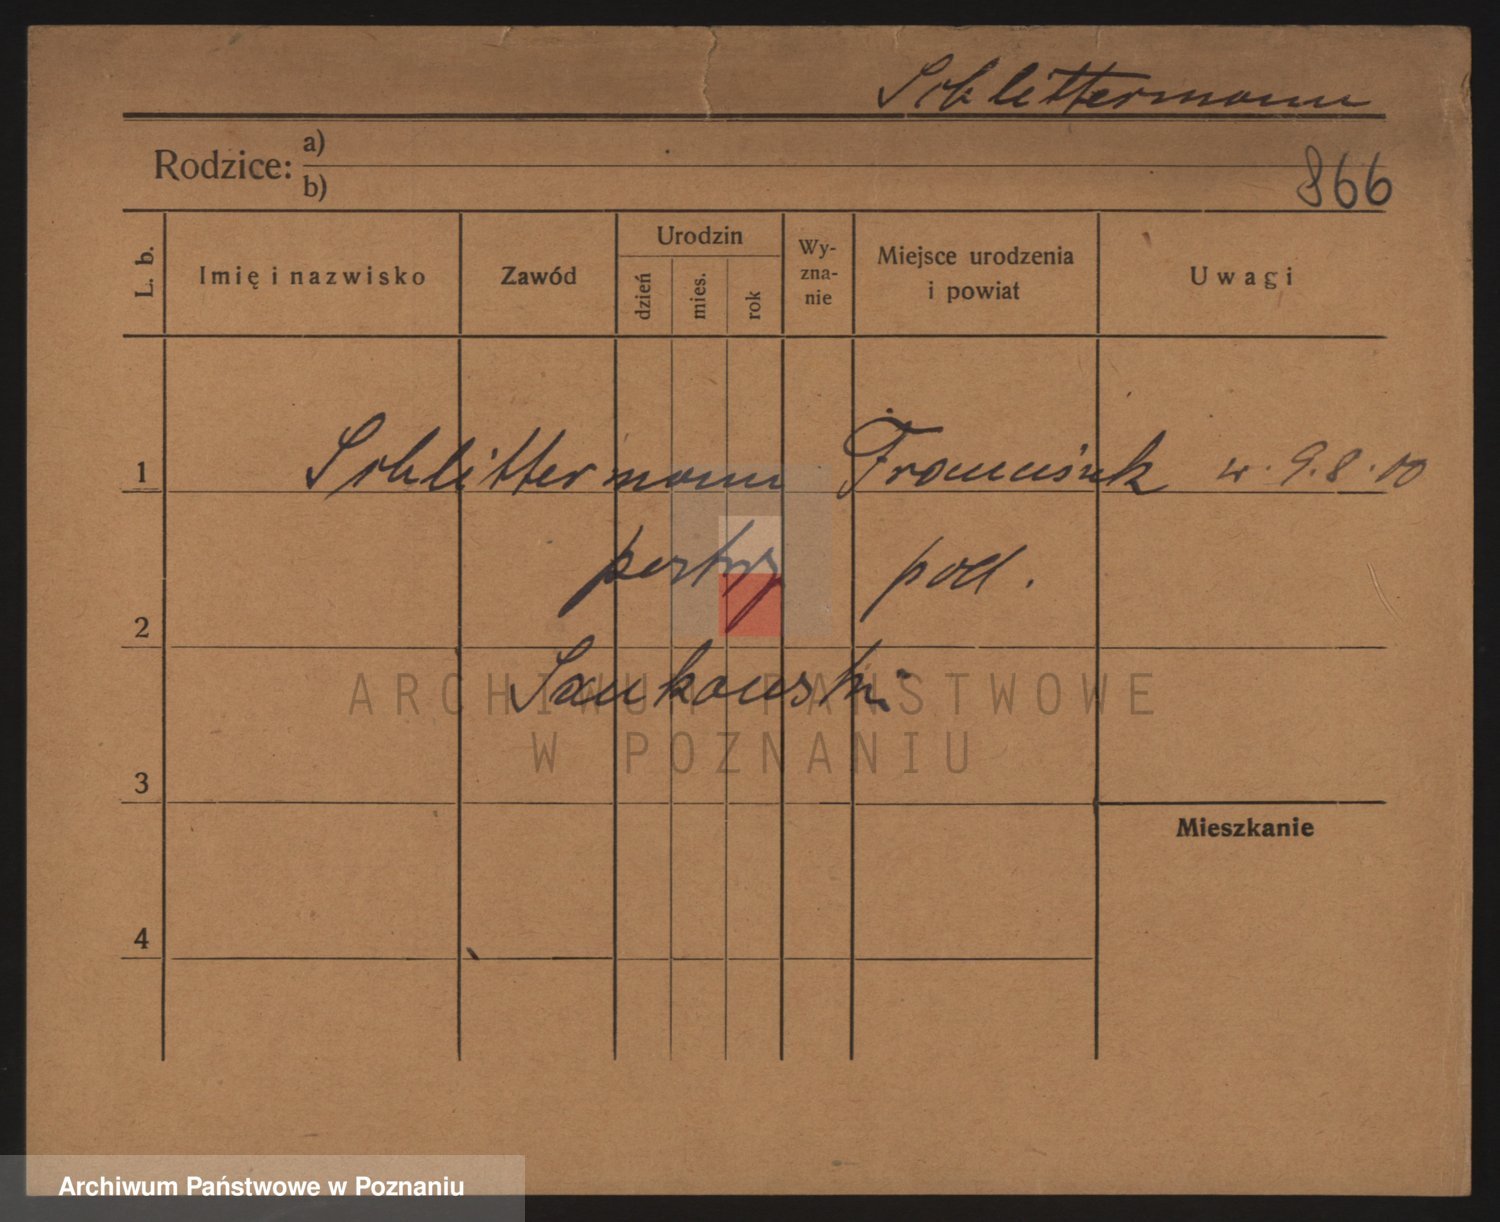 Schlittermann
Rodzice: a)
b)
866
L. b.
Imię i nazwisko
Zawód
Urodzin
dzień
mies.
rok
Wy-
zna-
nie
Miejsce urodzenia
i powiat
Uwagi
1
Schlittermann Franciszek 9.8.00
pod.
2
3
Mieszkanie
4
ARCHIWUM PAŃSTWOWE
W POZNANIU
Archiwum Państwowe w Poznaniu